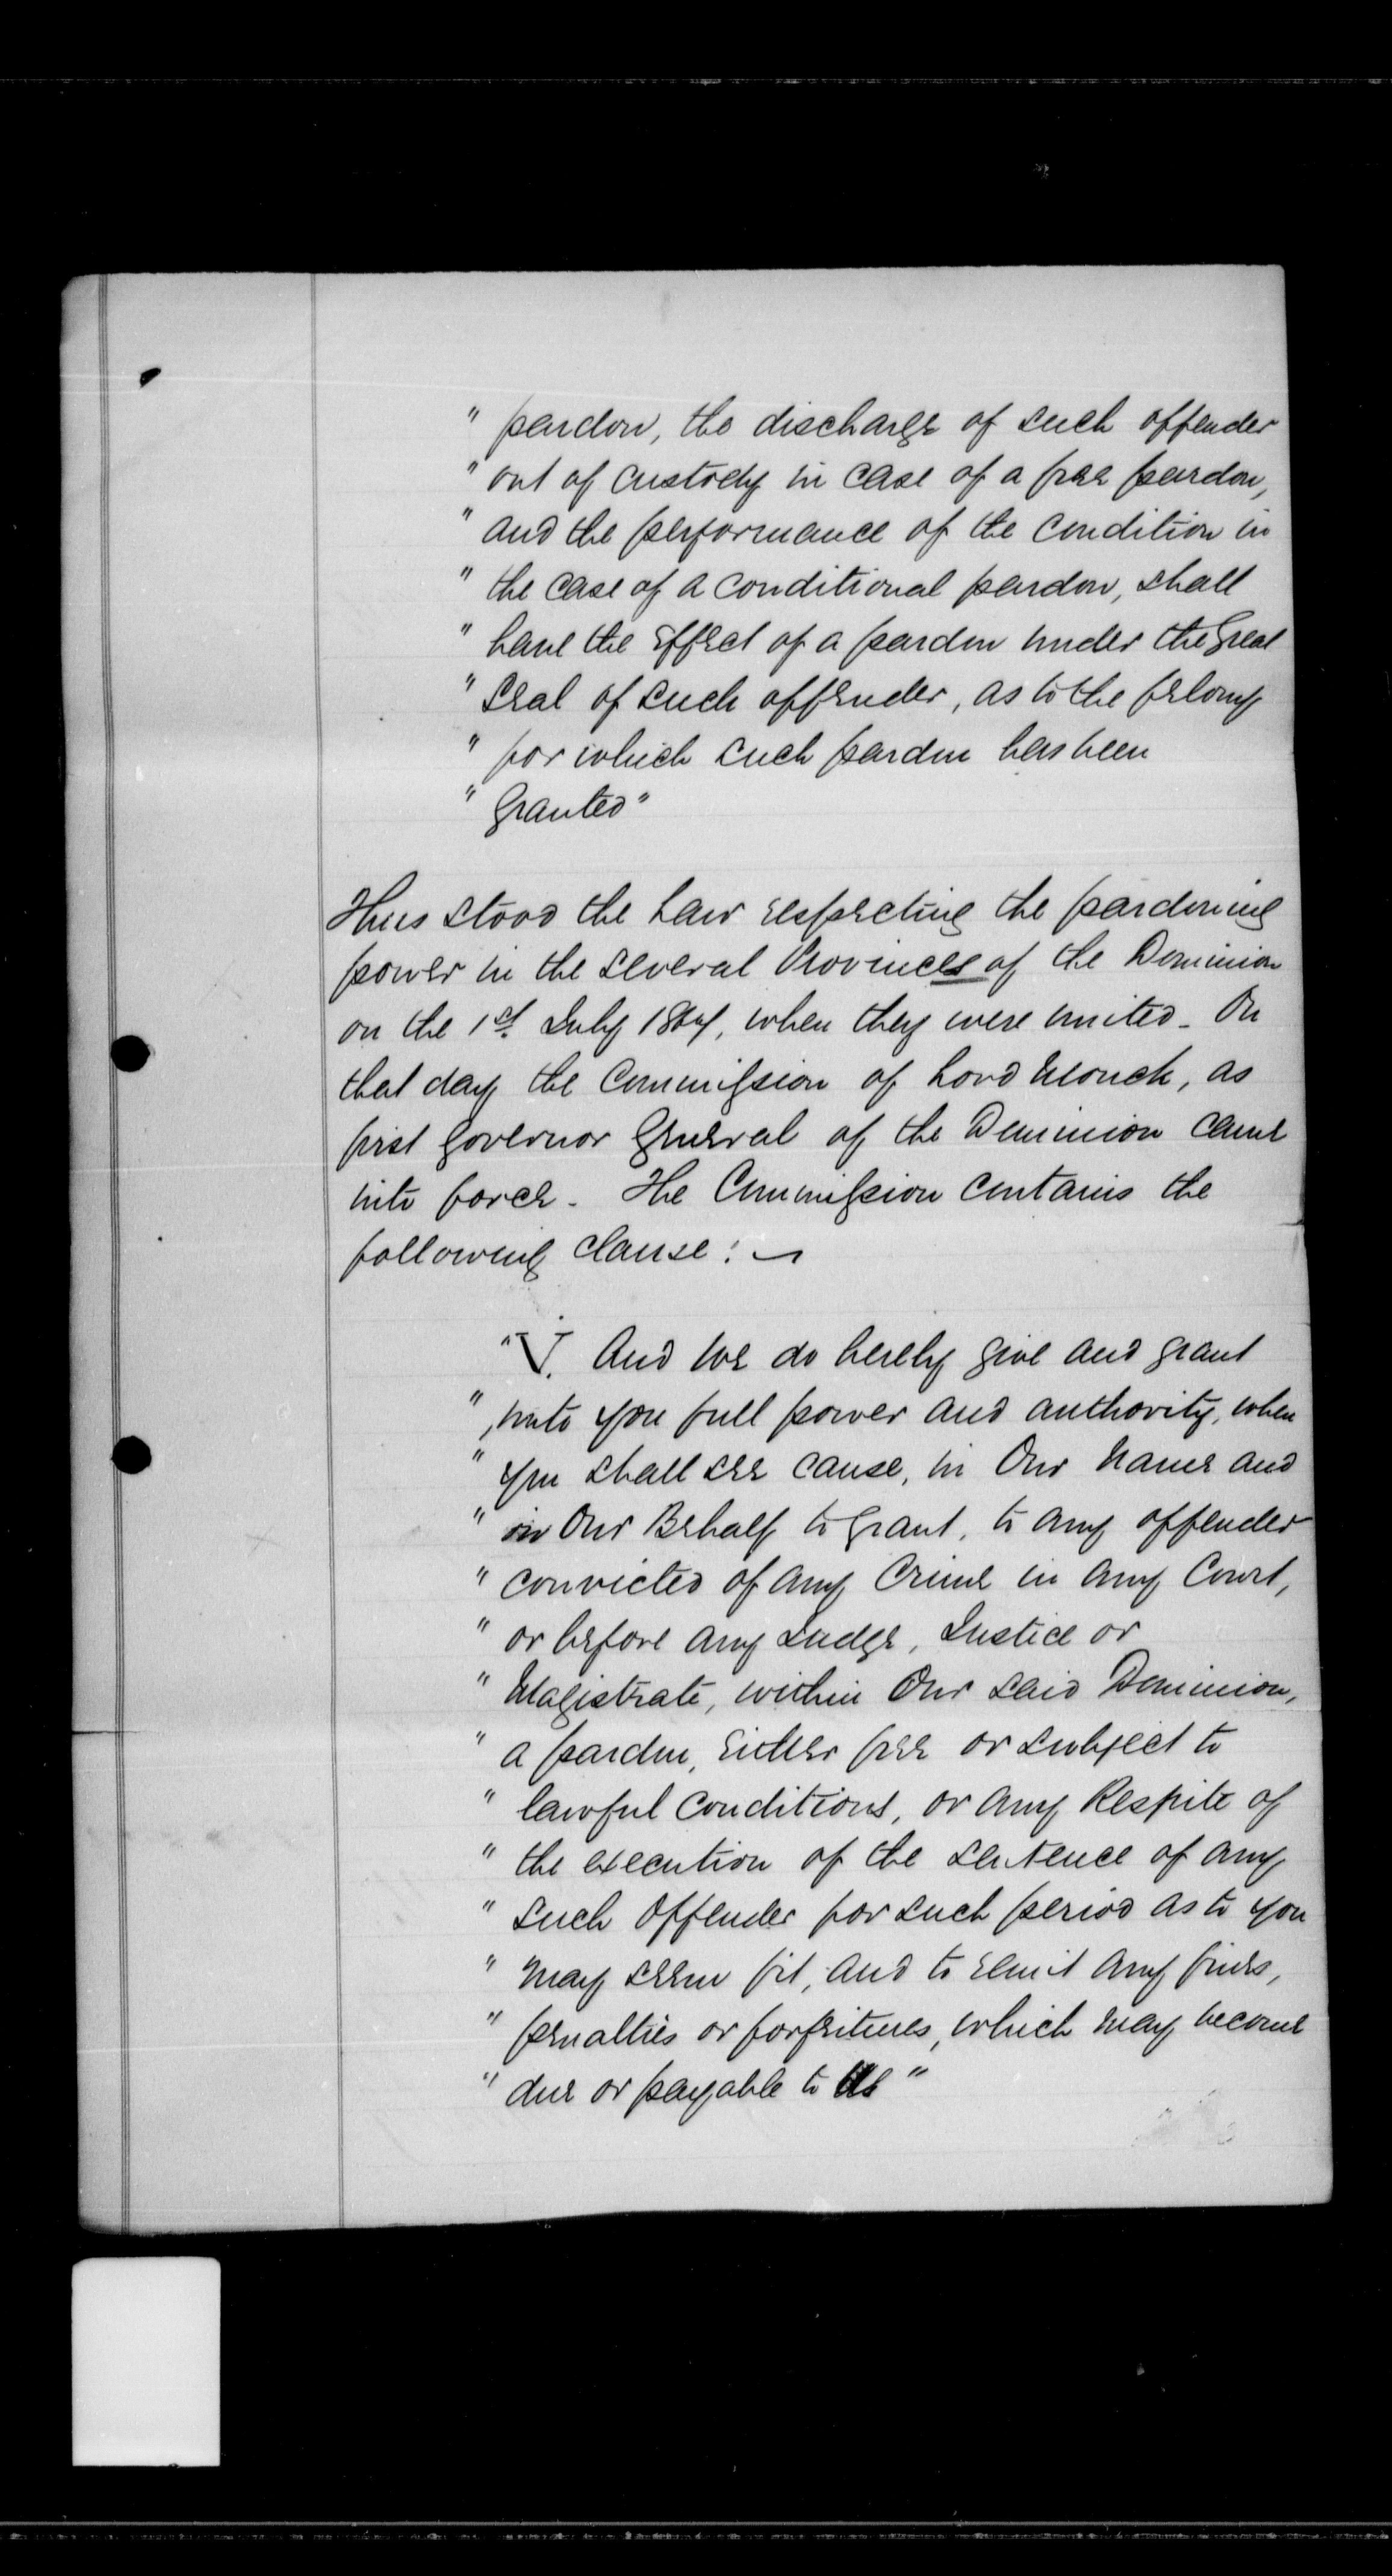 " pardon, the discharge of such offender
" out of custody in case of a free pardon,
" and the performance of the condition in
" the case of a conditional pardon, shall
" have the effect of a pardon under the Great
" Seal of such offender, as to the felony
" for which such pardon has been
" Granted"
Thus stood the Law respecting the pardoning
power in the several Provinces of the Dominion
on the 1st. July 1867, when they were united - On
that day the Commission of Lord Monck, as
first Governor General of the Dominion came
into force - The Commission contains the
following clause : -
"V. And We do hereby give and grant
" unto you full power and authority, when
" you shall see cause, in Our Name and
" in Our Behalf to Grant, to any offender
" convicted of any Crime in any Court,
" or before any Judge, Justice or
" Magistrate, within Our said Dominion,
" a pardon, either free or subject to
" lawful conditions, or any Respite of
" the execution of the sentence of any
" such Offender for such period as to you
" may seem fit, and to remit any fines,
" penalties or forfeitures, which may become
" due or payable to Us "